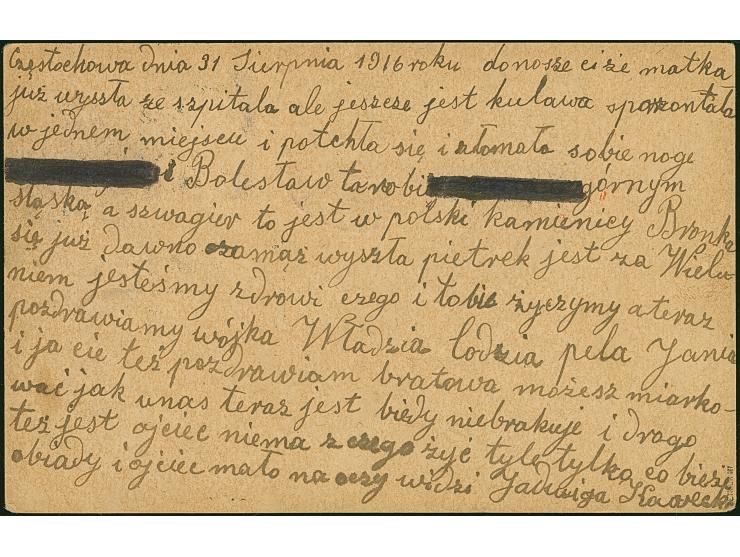 Częstochowa dnia 31 Sierpnia 1916 roku donosze ci że matka
już wyszła ze szpitala ale jeszcze jest kulawa
w jednem miejscu i potchła się i złomała sobie noge
i Bolesław tarobi górnym
śląską a szwagier to jest w polski kamienicy Bronka
się już dawno zamąż wyszła pietrek jest za Wielu-
niem jesteśmy zdrowi czego i tobie życzymy a teraz
pozdrawiamy wójka Władzia lodzia pela Jania
i ja cie też pozdrawiam bratowa możesz miarko-
wać jak unas teraz jest biedy niebrakuje i drogo
też jest ojciec niema z czego żyć tyle tylko co bieże
obiady i ojciec mało na oczy widzi Jadwiga